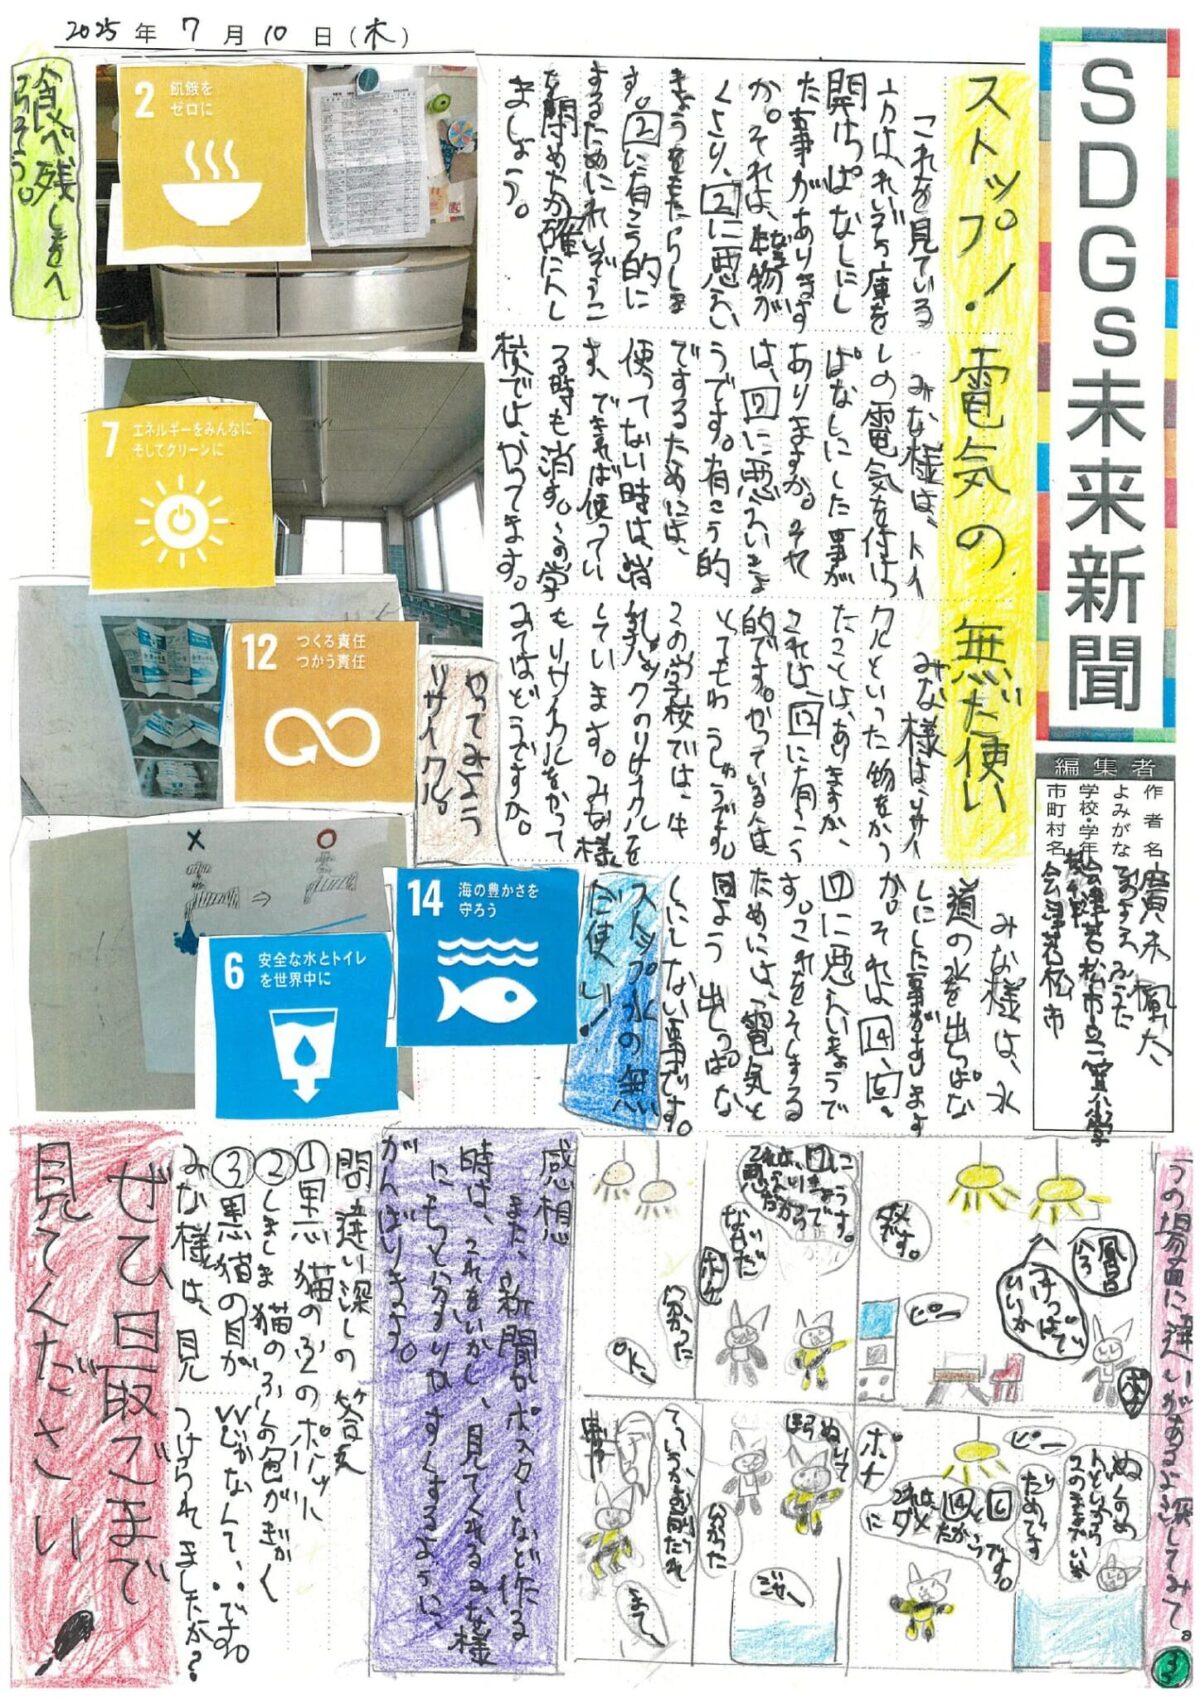 2025年7月10日(木)
SDGs未来新聞
編集者
作者名
よみがな
学校・学年
市町村名
会津若松市
ストップ!電気の無だ使い
これを見ている
方は、れいぞう庫を
開けっぱなしにし
た事がありますか。
か。それは、食物が
くさり、2に悪い
きょうをもたらしま
す。2に有こう的に
するためにれいぞうこ
を閉めたか確にんし
ましょう。
みな様は、トイ
レの電気を付けっ
ぱなしにした事が
ありますか。それ
は、7に悪いいきょ
うです。有こう的
でするためには、
使ってない時は、消
す、できれば使ってい
る時も消す。この学
校でよ、やってます。
みな様は、リサイ
クルといった物をやっ
たことは、ありますか、
これは、12に有こう
的です。やっている人は
とってもゆうしゅうです。
この学校では、牛
乳パックのリサイクルを
しています。みな様
もリサイクルをやって
みてはどうですか。
みな様は、水
道の水を出っぱな
しにした事があります
か。それは14、6、
7に悪えいきょうで
す。これをそしする
ためには、電気と
同よう出しっぱな
しにしない事です。
食べ残しをへ
らそう。
2 飢餓を
ゼロに
7 エネルギーをみんなに
そしてクリーンに
12 つくる責任
つかう責任
やってみよう
リサイクル。
14 海の豊かさを
守ろう
6 安全な水とトイレ
を世界中に
ストップ水の無
だ使い!
4つの場面に違いがあるよ探してみて。
ピー
ピー
だめです
分かった
OK
ポチ
分かった
ジャー
感想
また、新聞かポスターなど作る
時は、これをいかし、見てくれるみな様
にもっと分かりやすくするように、
がんばります。
間違い深しの答え
①黒猫のふくのポケットに
②しましま猫のふくの色がぎゃく
③黒猫の目が
みな様は、見つけられましたか?
ぜひ最ごまで
見てください